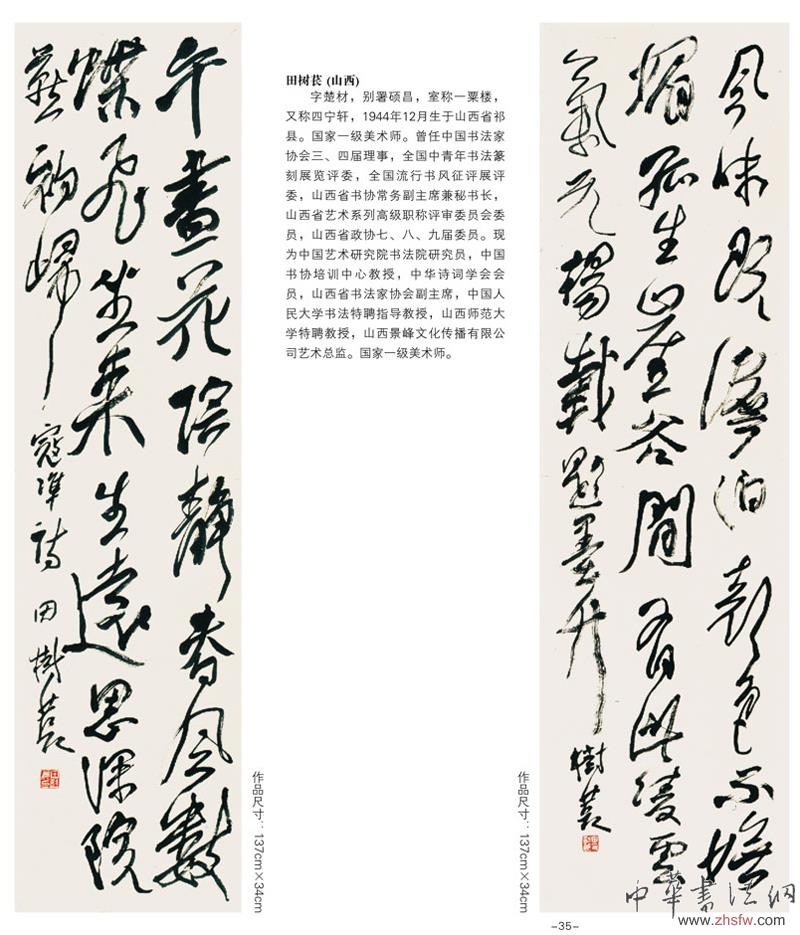 午晝花陰靜春風數
蝶飛坐来生遠思深院
燕初歸 寇準詩 田樹萇
作品尺寸：137cm×34cm
田树苌 (山西)
字楚材，别署硕昌，室称一粟楼，
又称四宁轩，1944年12月生于山西省祁
县。国家一级美术师。曾任中国书法家
协会三、四届理事，全国中青年书法篆
刻展览评委，全国流行书风征评展评
委，山西省书协常务副主席兼秘书长，
山西省艺术系列高级职称评审委员会委
员，山西省政协七、八、九届委员。现
为中国艺术研究院书法院研究员，中国
书协培训中心教授，中华诗词学会会
员，山西省书法家协会副主席，中国人
民大学书法特聘指导教授，山西师范大
学特聘教授，山西景峰文化传播有限公
司艺术总监。国家一级美术师。
風味既澹泊顏色不嫵
媚孤生崖谷間有此凌雲
氣元楊載題墨竹 樹萇
作品尺寸：137cm×34cm
-35-
中華書法網
www.zhsfw.com